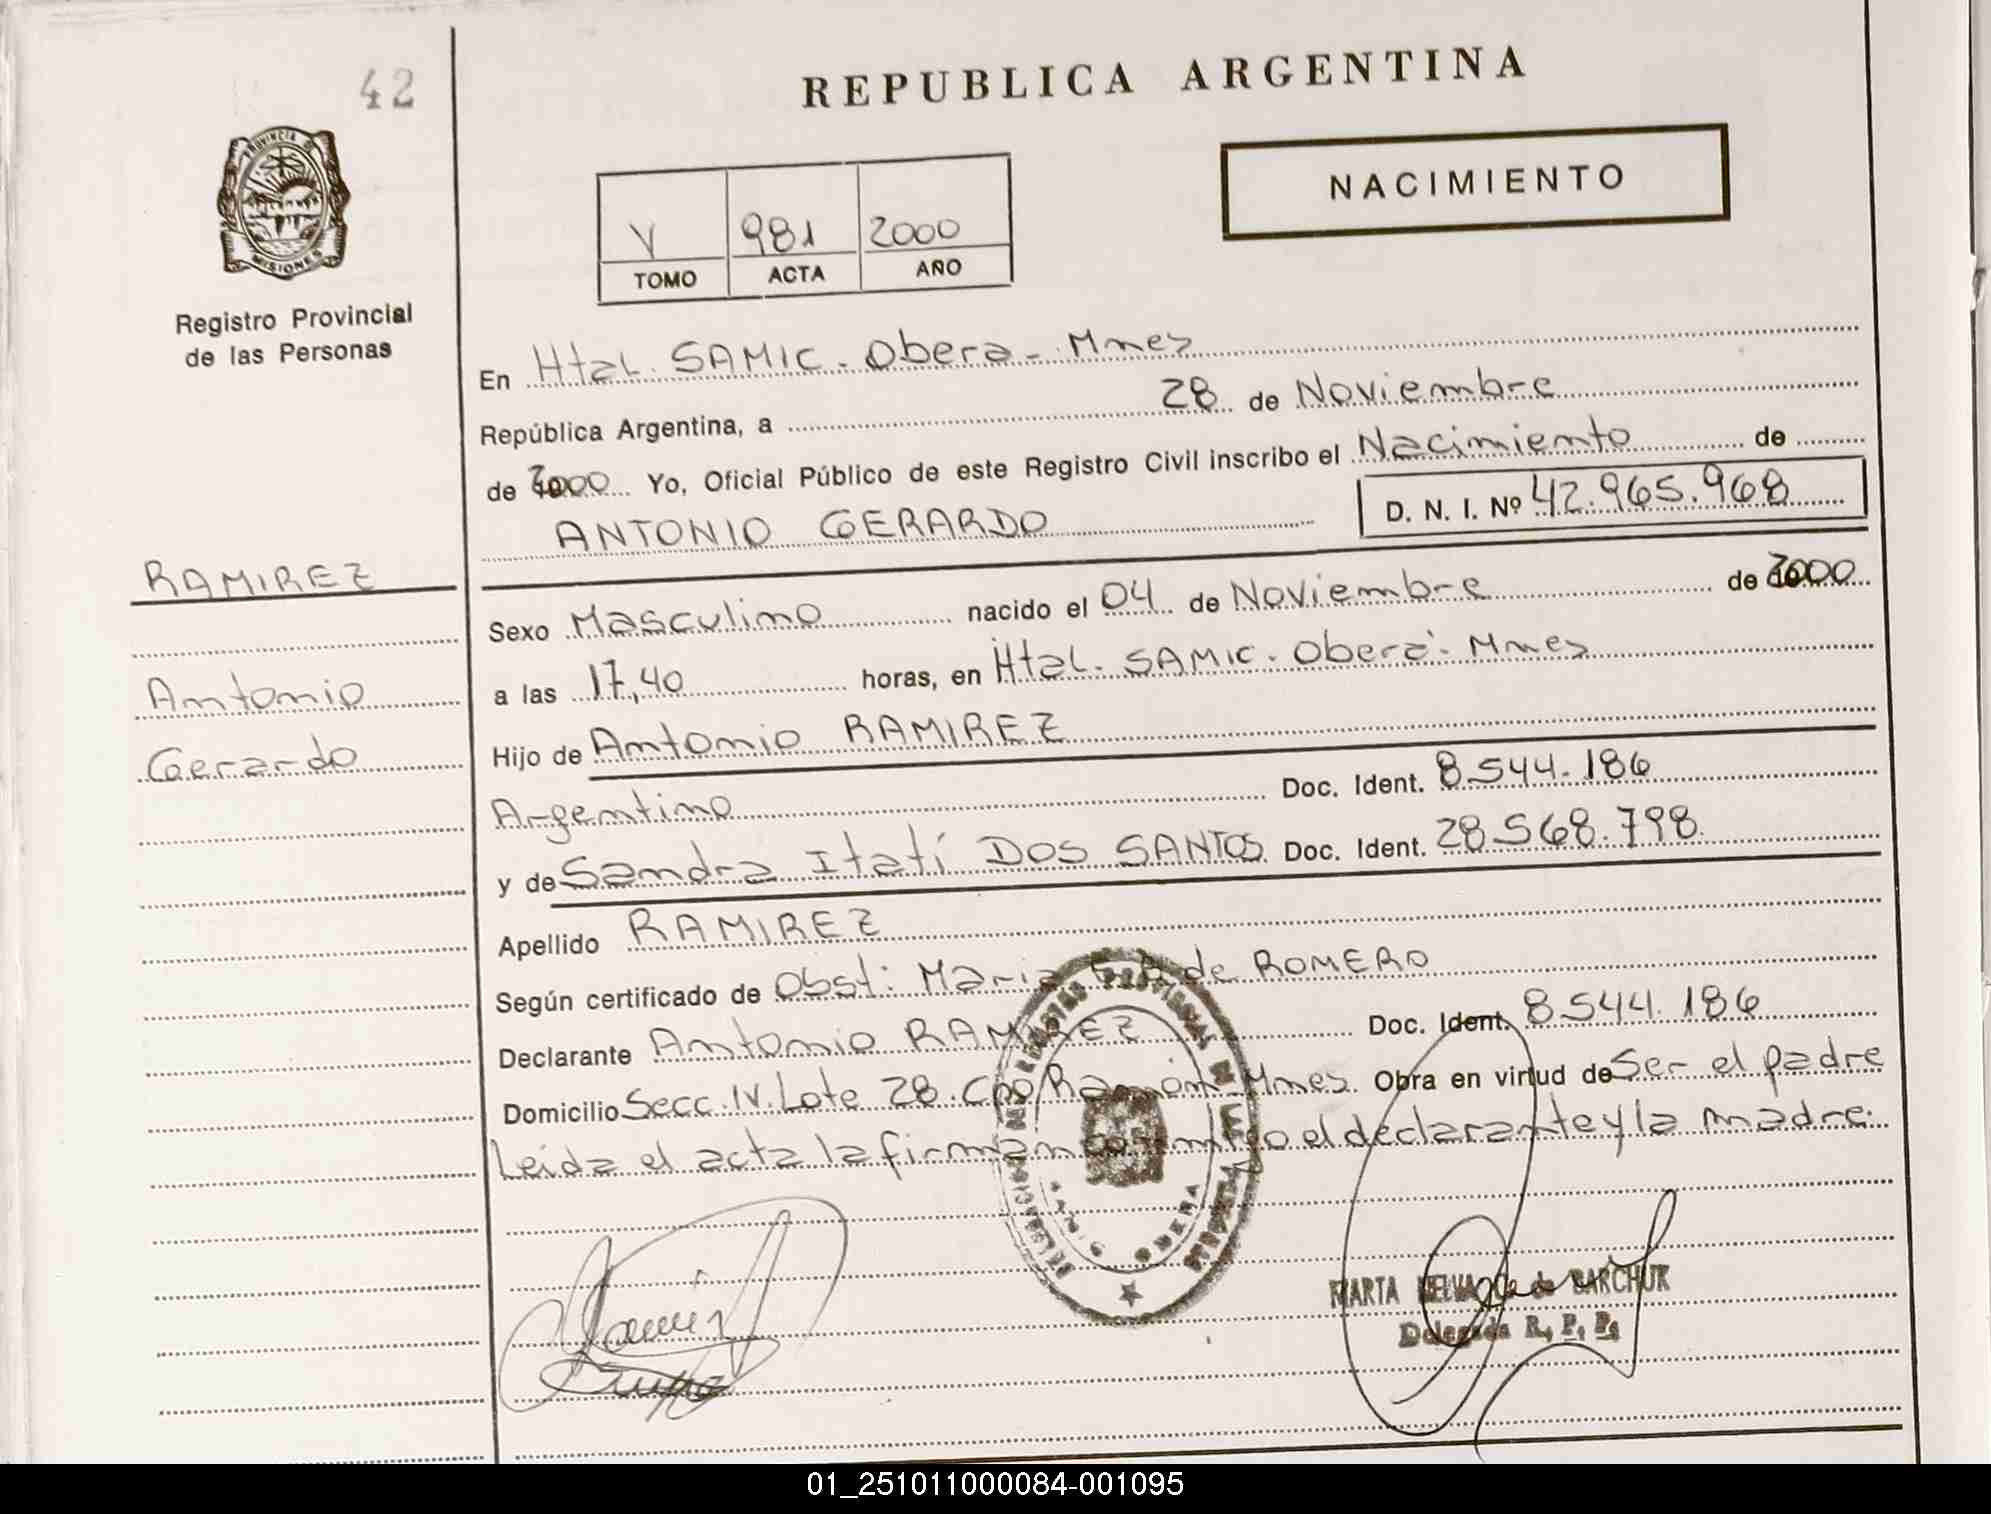 42
REPUBLICA ARGENTINA
PROVINCIA DE
MISIONES
Registro Provincial
de las Personas
NACIMIENTO
V 981 2000
TOMO ACTA AÑO
En Htal. SAMIC. Obera - Mnes
República Argentina, a 28 de Noviembre
de 2000 Yo, Oficial Público de este Registro Civil inscribo el Nacimiento de
ANTONIO GERARDO D. N. I. Nº 42.965.968
RAMIREZ
Sexo Masculino nacido el 04 de Noviembre de 2000
Antonio
a las 17,40 horas, en Htal. SAMIC. Oberá. Mnes
Gerardo
Hijo de Antonio RAMIREZ
Argentino Doc. Ident. 8.544.186
y de Sandra Itatí DOS SANTOS Doc. Ident. 28.568.798
Apellido RAMIREZ
Según certificado de Obst: Maria de ROMERO
Declarante Antonio RAMIREZ Doc. Ident. 8.544.186
Domicilio Secc. IV. Lote 28. Cpo/Ramón-Mnes. Obra en virtud de Ser el padre
Leida el acta la firman conmigo el declarante y la madre.
OBERA
MARTA de BARCHUK
Delegada R. P. P.
01_251011000084-001095